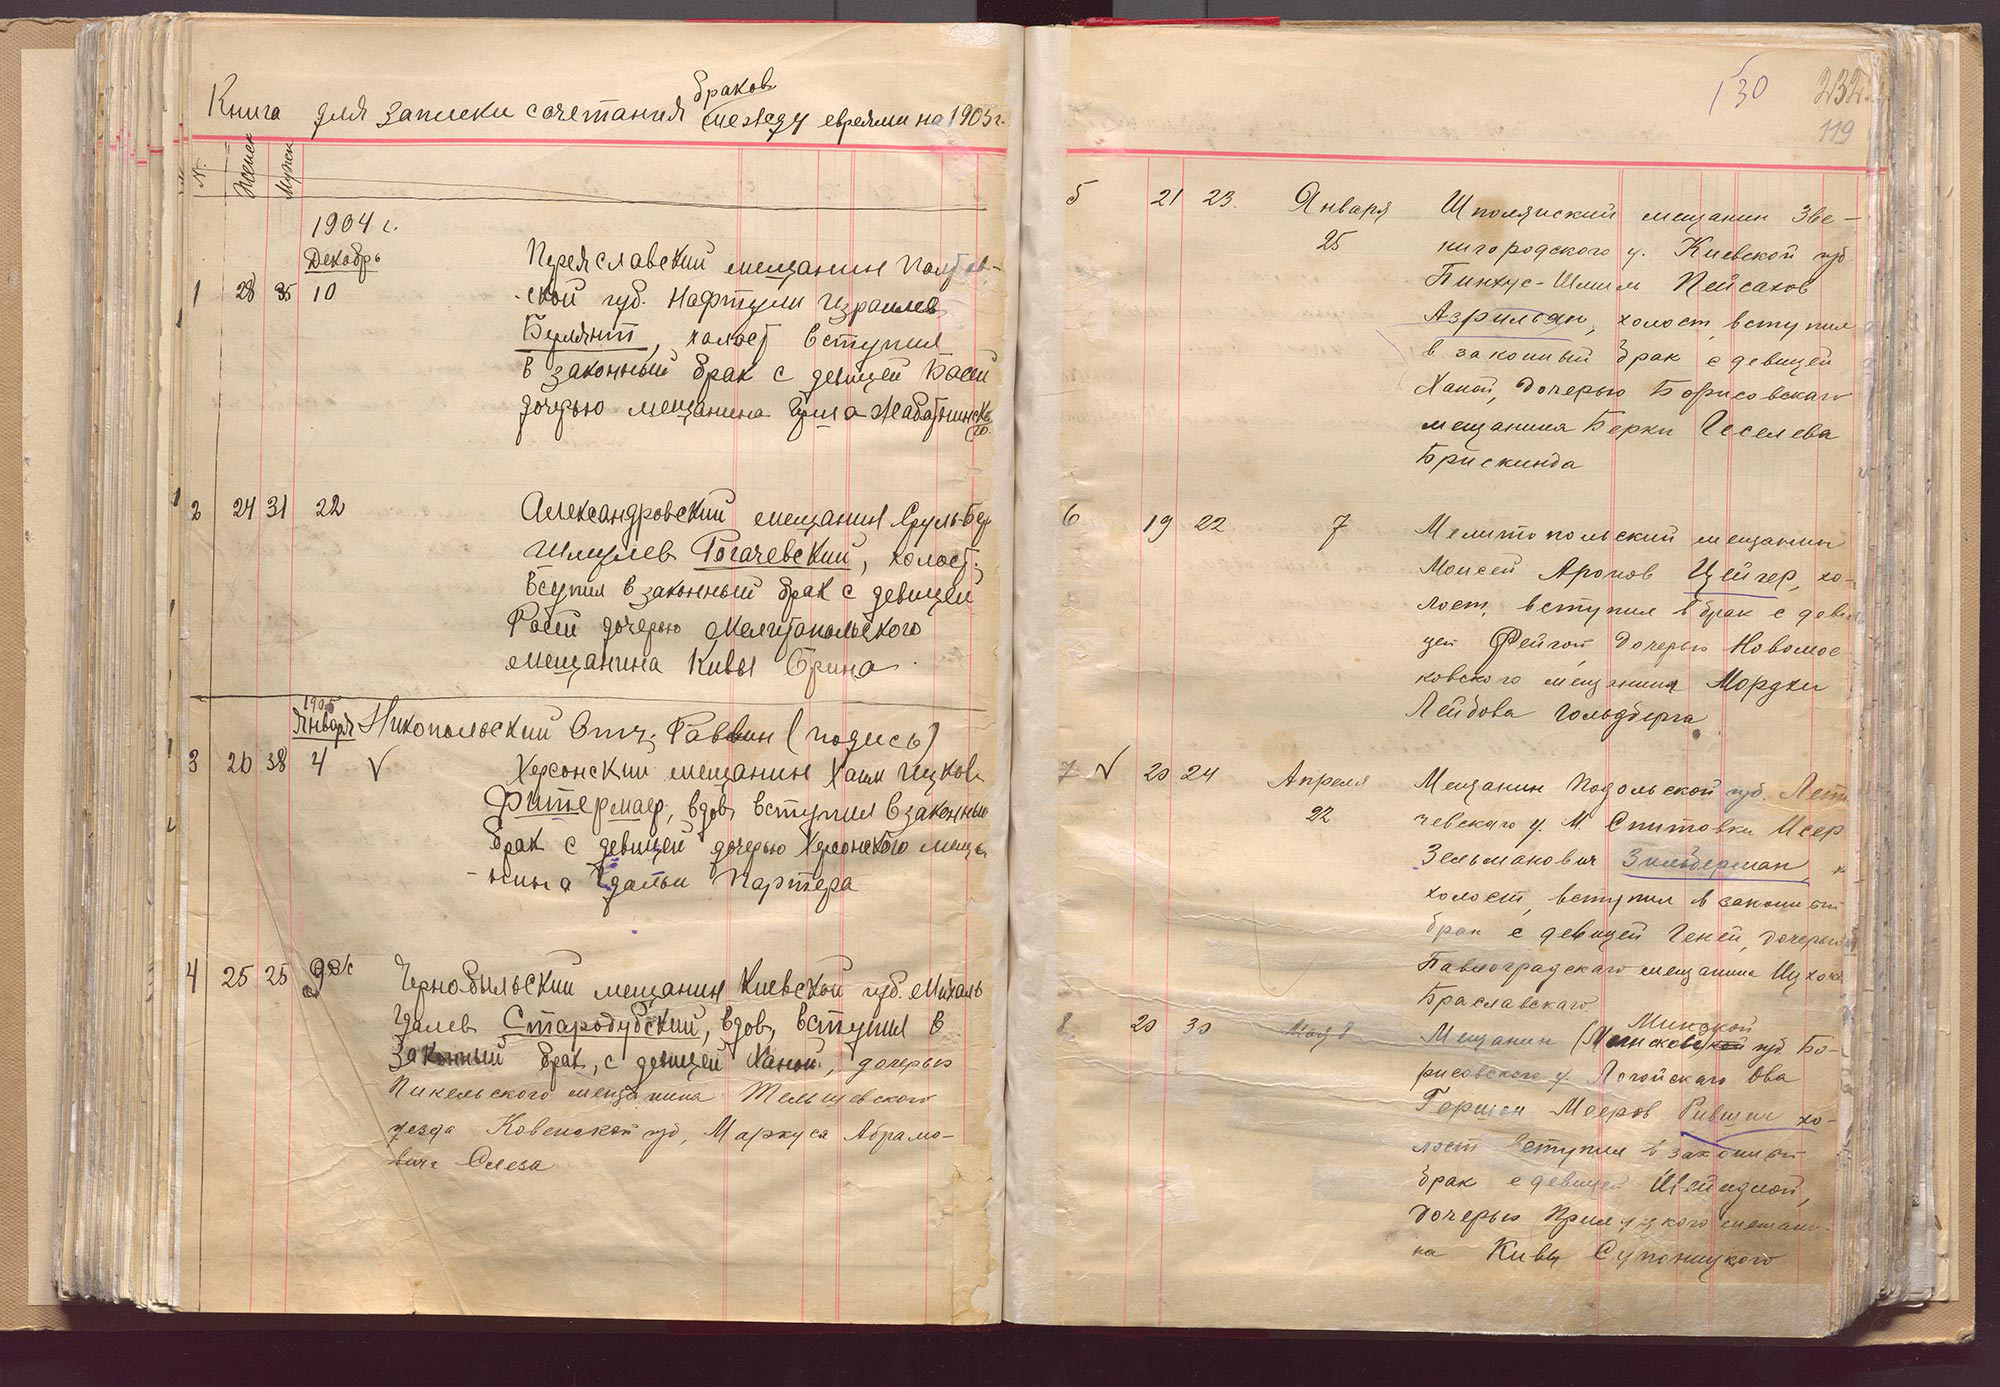 браков
Книга для записки сочетания между евреями на 1905 г.
№ Женск Мужск
1904 г.
Декабрь
Переяславский мещанин Полтав-
1 28 35 10 ской губ. Нафтули Израилев
, холост вступил
в законный брак с девицей Басей
дочерью мещанина
го.
2 24 31 22 Александровский мещанин Сруль Бер
Шмулев Рогачевский, холост.
вступил в законный брак с девицей
дочерью Мелитопольского
мещанина Кивы Орина
1905
Января Никопольский Раввин (подпись)
3 20 38 4 √ Херсонский мещанин Хаим Ицков
Фитермаер, вдов, вступил в законный
брак с девицей дочерью Херсонского меща
-нина Партера
4 25 25 9 Чернобыльский мещанин Киевской губ. Михаль
Стародубский, вдов, вступил в
законный брак, с девицей Ханой, дочерью
Пикельского мещанина Тельшевского
уезда Ковенской губ, Маркуса Абрамо-
вича Слеза
130 232
119
5 21 23. Января Шполянский мещанин Зве-
25 нигородского у. Киевской губ
Пинхус-Шлиом Пейсахов
Азрильян, холост, вступил
в законный брак с девицей
Ханой, дочерью Борисовскаго
мещанина Берки Иоселева
Брискинда
6 19 22 7 Мелитопольский мещанин
Моисей Аронов Цейгер, хо-
лост, вступил в брак с деви
цей Фейгой, дочерью Новомос-
ковского мещанина Мордхи
Лейбова Гольдберга
7 √ 20 24 Апреля Мещанин Подольской губ. Лети
22 чевскаго у. М. Снитовки Исер
Зельманович Зильберман,
холост, вступил в законный
брак с девицей Геней, дочерью
Павлоградскаго мещанина Ицхока
Браславскаго
Минской
8 20 30 Мещанин губ. Бо-
рисовского у. Логойскаго Ова
Гершон Мееров Ривман хо-
лост вступил в законный
брак с девицей Шейндлой,
дочерью Прилуцкого мещани-
на Кивы Супоницкого